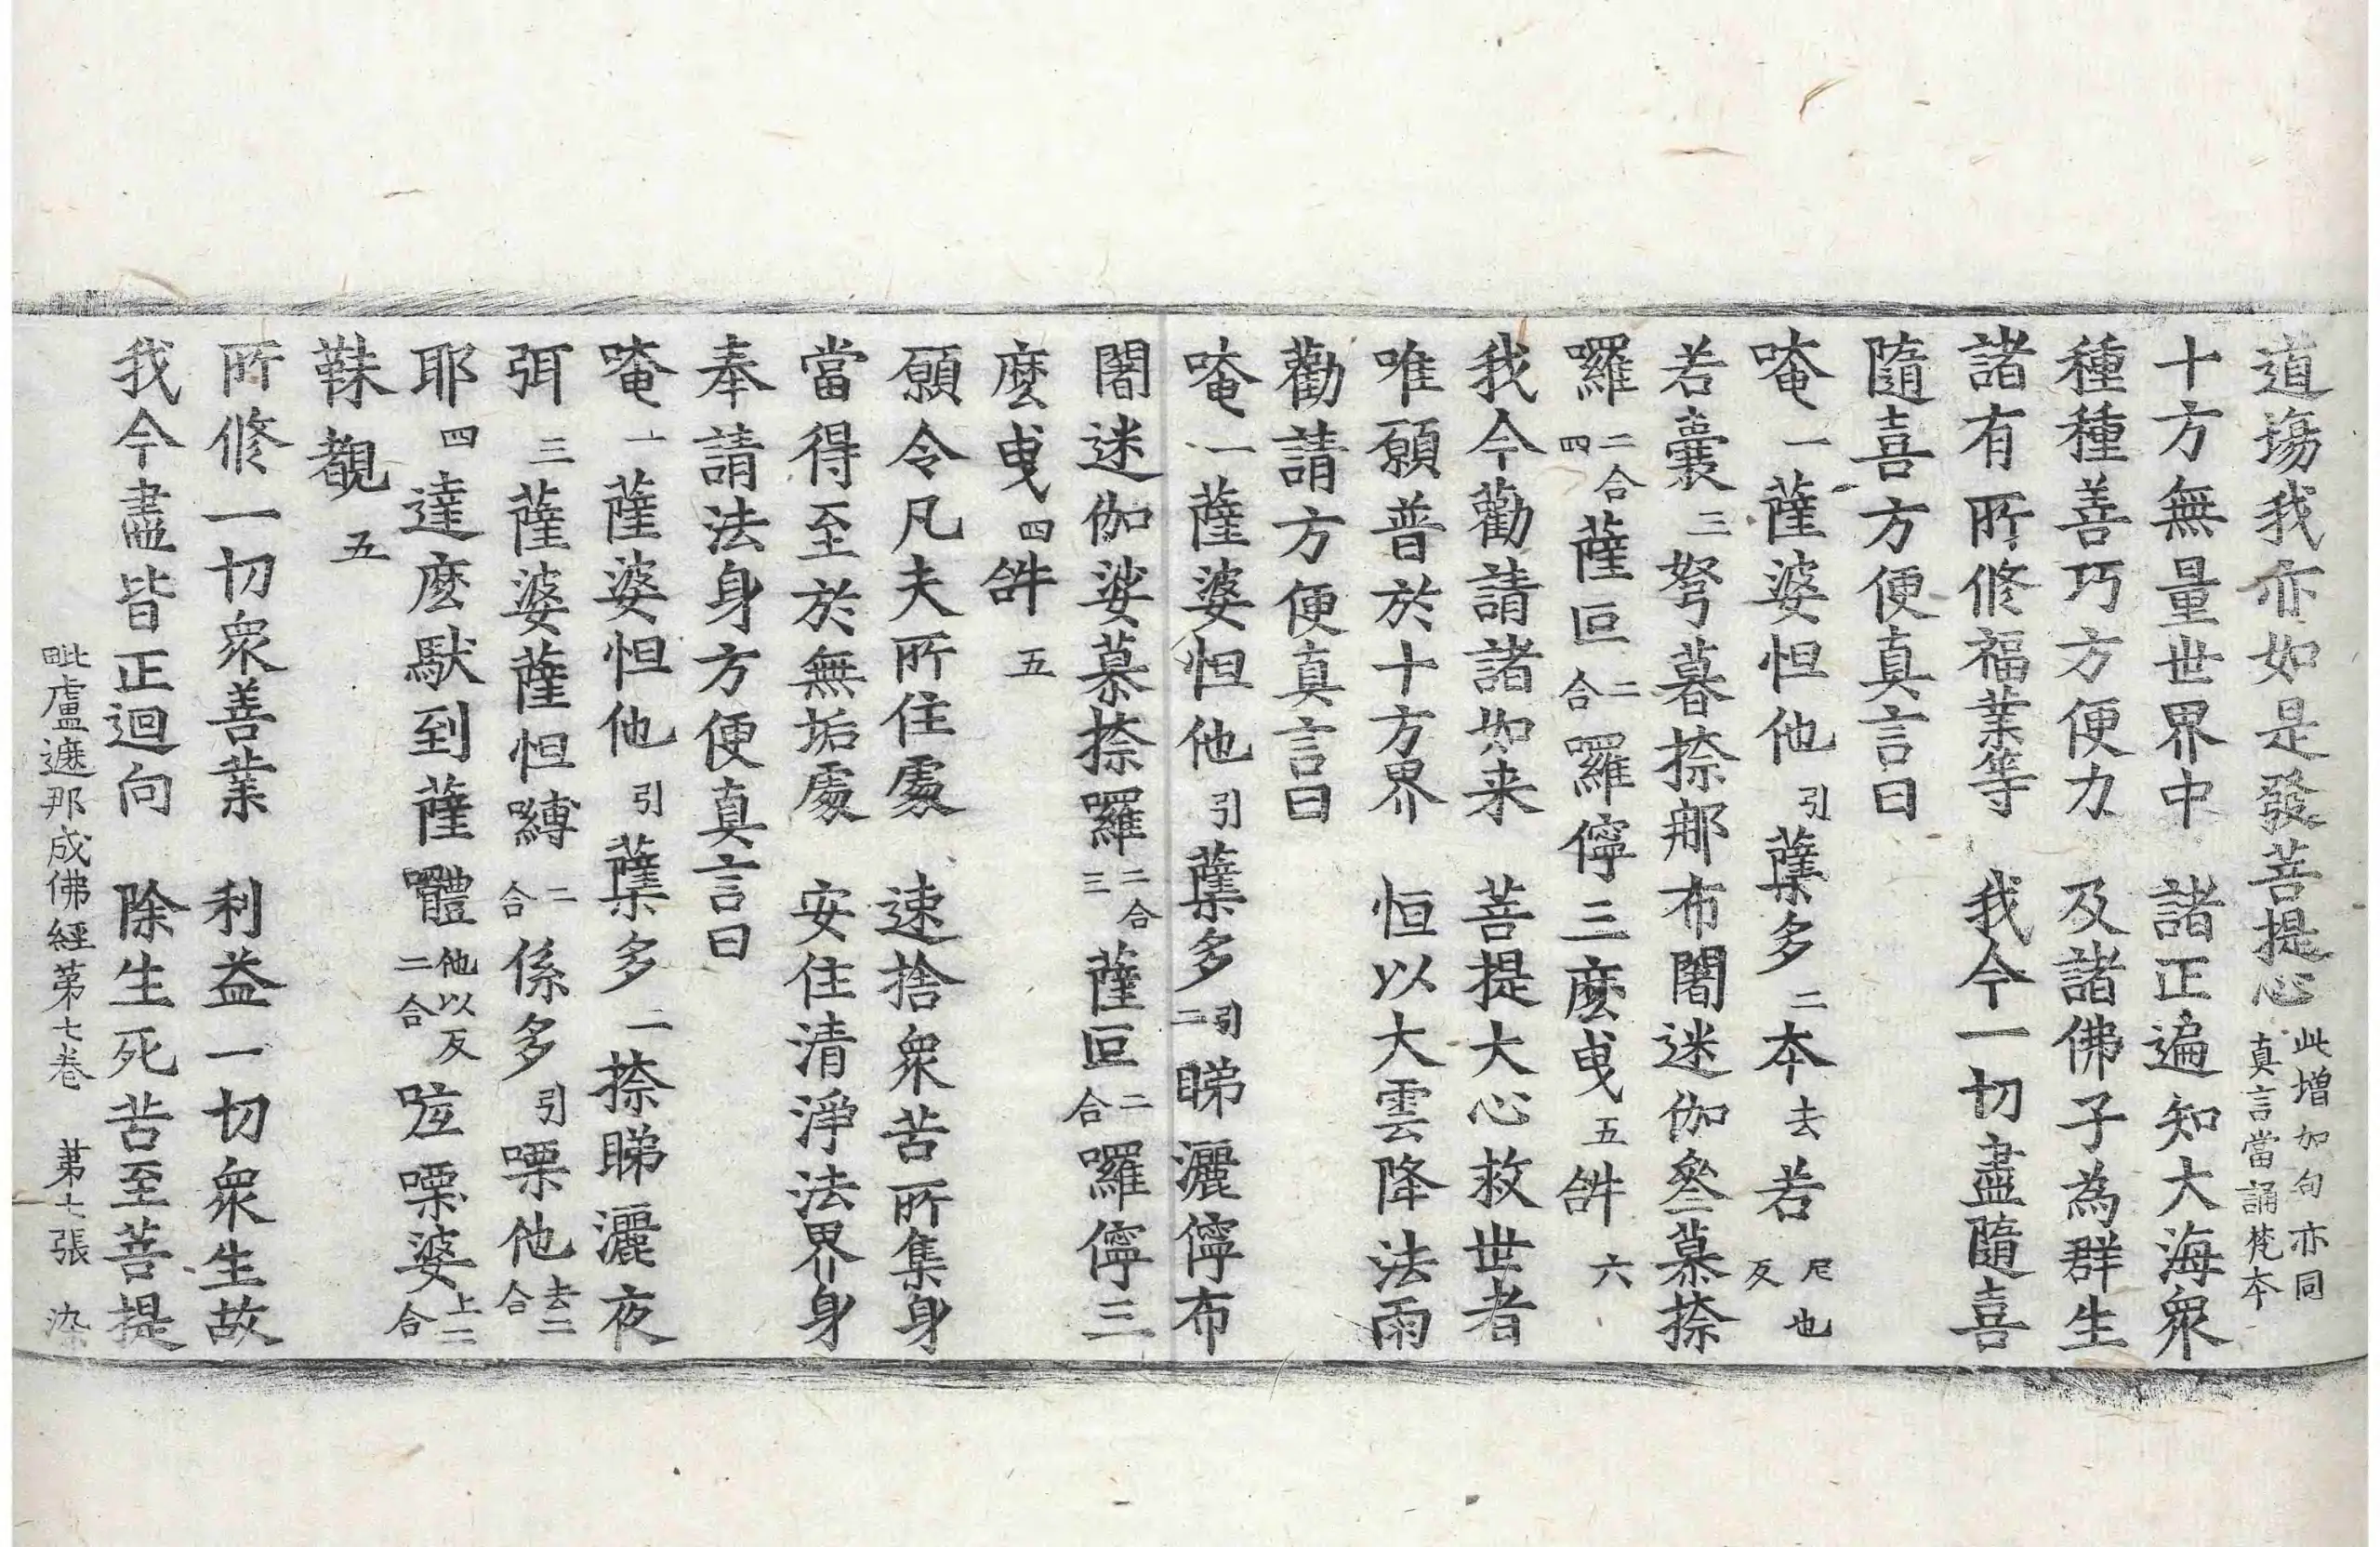 道場我亦如是發菩提心此增加句亦同真言當誦梵本
十方無量世界中　諸正遍知大海衆
種種善巧方便力　及諸佛子為群生
諸有所修福業等　我今一切盡隨喜
隨喜方便真言曰
唵一薩婆怛他引蘖多二本去若尼也反
若囊三弩暮捺那布闍迷伽參慕捺
囉二合四薩叵二合囉儜三麼曳五𤙖六
我今勸請諸如来　菩提大心救世者
唯願普於十方界　恒以大雲降法雨
勸請方便真言曰
唵一薩婆怛他引蘖多引二睇灑儜布
闍迷伽娑慕捺囉二合三薩叵二合囉儜三
麼曳四𤙖五
願令凡夫所住處　速捨衆苦所集身
當得至於無垢處　安住清淨法界身
奉請法身方便真言曰
唵一薩婆怛他引蘖多二捺睇灑夜
弭三薩婆薩怛嚩二合係多引㗚他去二合
耶四達麼馱到薩體他以反二合㗚婆上二合
靺覩五
所修一切衆善業　利益一切衆生故
我今盡皆正迴向　除生死苦至菩提
毗盧遮那成佛經第七卷　第七張